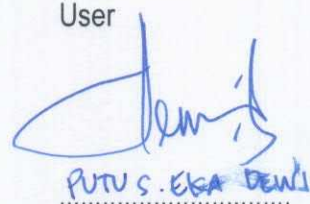 User
Dewi
PUTU S. EKA DEWI
..............................